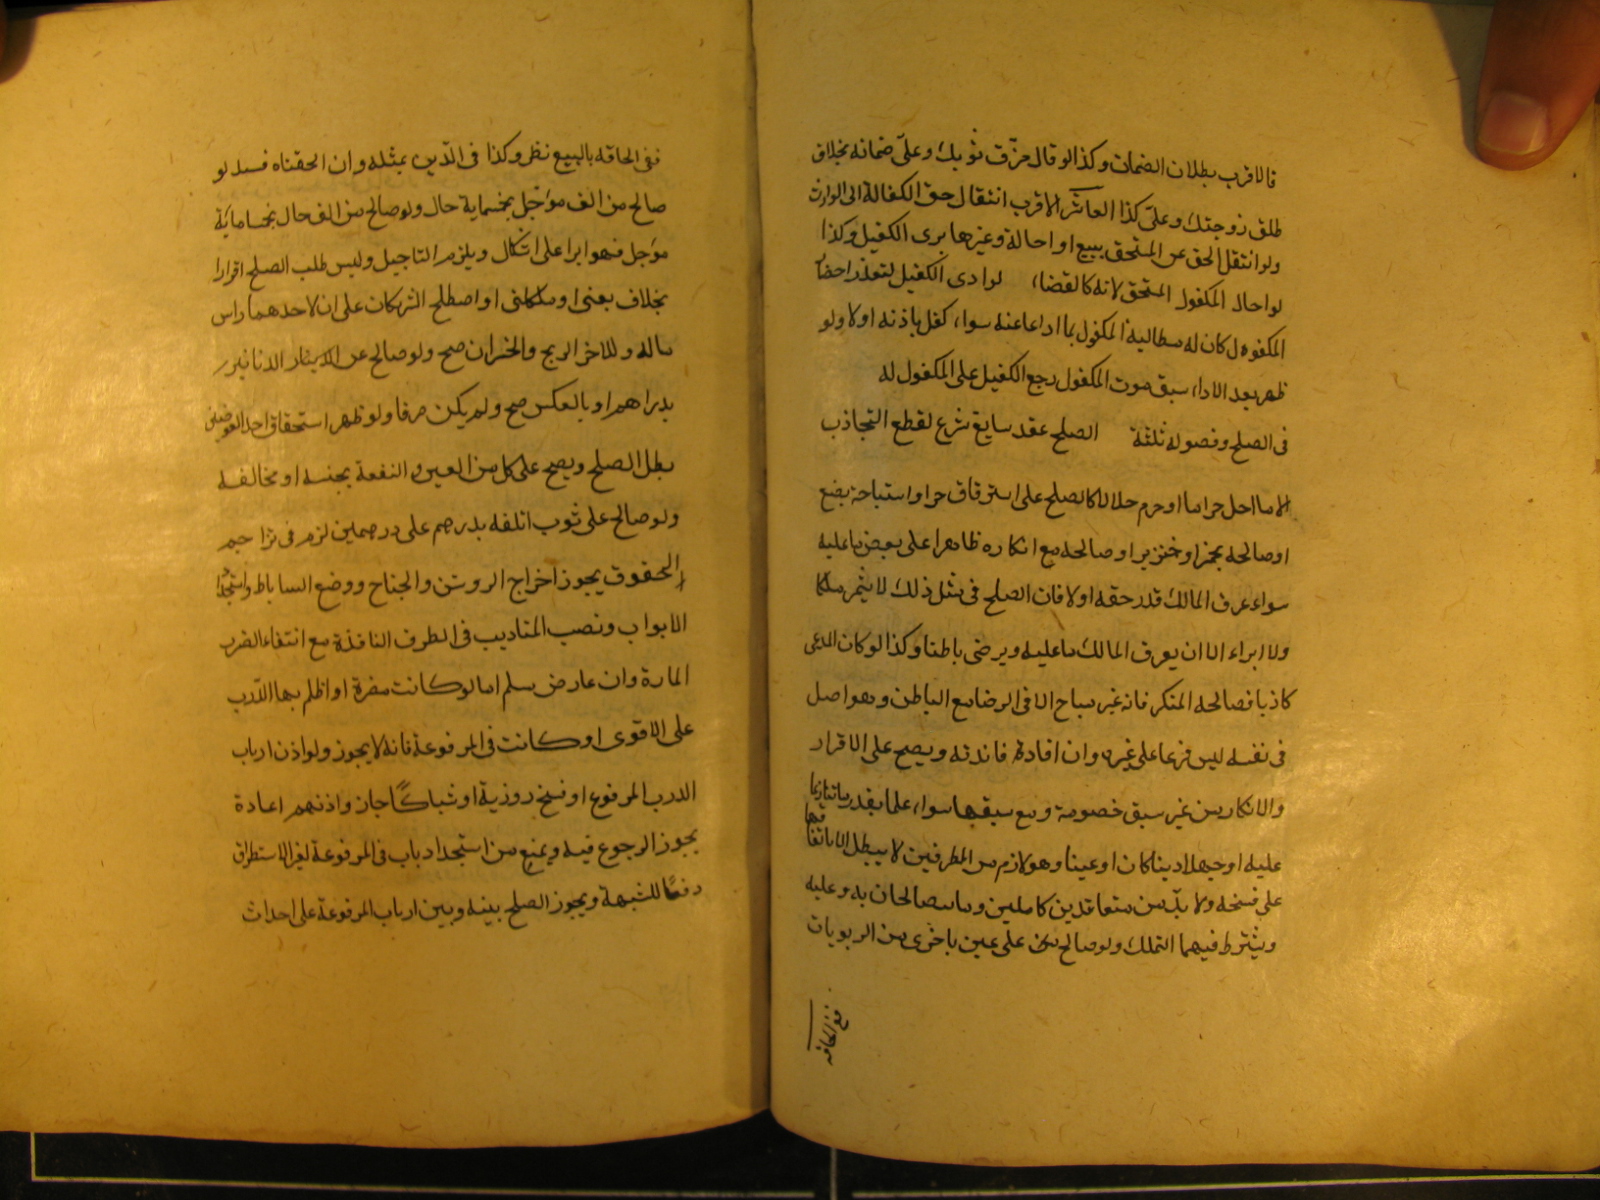 فالاقرب بطلان الضمان وكذا لو قال مزّق ثوبك وعلىّ ضمانه بخلاف
طلق زوجتك وعلىّ كذا العاشر الاقرب انتقال حق الكفالة الى الوارث
ولو انتقل الحق عن المستحق ببيع او احالة وغيرها برى الكفيل وكذا
لو احال المكفول المستحق لانه كالقضاء لو ادى الكفيل لتعذر احضار
المكفول كان له مطالبة المكفول بما اداه عنه سواء كفل باذنه اولا ولو
ظهر بعد الاداء سبق موت المكفول رجع الكفيل على المكفول له
فى الصلح وفصوله ثلثة الصلح عقد سايغ شرع لقطع التجاذب
الا ما احل حراما او حرم حلالا كالصلح على استرقاق حر او استباحة بضع
او صالحه بخمر او خنزير او صالحه مع انكاره ظاهرا على بعض ما عليه
سواء عرف المالك قدر حقه اولا فان الصلح فى مثل ذلك لا يثمر ملكا
ولا ابراء الا ان يعرف المالك ما عليه ويرضى باطنا وكذا لو كان المدعى
كاذبا فصالحه المنكر فانه غير مباح الا فى الرضا مع الباطن وهو اصل
فى نفسه ليس فرعا على غيره وان افاد فائدته ويصح على الاقرار
والانكار من غير سبق خصومة ومع سبقها سواء علما بقدر ما تنازعا
فيها
عليه او جهلا دينا كان او عينا وهو لازم من الطرفين لا يبطل الا باتفاقهما
على فسخه ولا بدّ من متعاقدين كاملين وما يصالحان به وعليه
ويشترط فيهما التملك ولو صالح على عين باخرى من الربويات
ففى الحاقه
ففى الحاقه بالبيع نظر وكذا فى الدّين بمثله وان الحقناه فسد لو
صالح من الف مؤجل بخمسماية حال ولو صالح من الف حال بخمسماية
مؤجل فهو ابرا على اشكال ويلزم التاجيل وليس طلب الصلح اقرارا
بخلاف بعنى او ملكنى او اصطلح الشريكان على ان لاحدهما راس
ماله وللاخر الربح والخسران صح ولو صالح عن الدنانير
بدراهم او بالعكس صح ولم يكن صرفا ولو ظهر استحقاق احد العوضين
بطل الصلح ويصح على كل من العين والنفعة بجنسه او مخالفه
ولو صالح على ثوب اتلفه بدرهم على درهمين لزم فى تزاحم
الحقوق يجوز اخراج الروشن والجناح ووضع الساباط واستجداد
الابواب ونصب المتاديب فى الطرف النافذة مع انتفاء الضرب
المارة وان عارض مسلم اما لو كانت مضرة او اظلم بها الدّرب
على الاقوى او كانت فى المرفوعة فانه لا يجوز ولو اذن ارباب
الدرب المرفوع او فتح روزنة او شباكًا جاز واذنهم اعادة
يجوز الرجوع فيه ويمنع من استجداد باب فى المرفوعة لغير الاستطراق
دفعًا للشبهة ويجوز الصلح بينه وبين ارباب المرفوعة على احداث